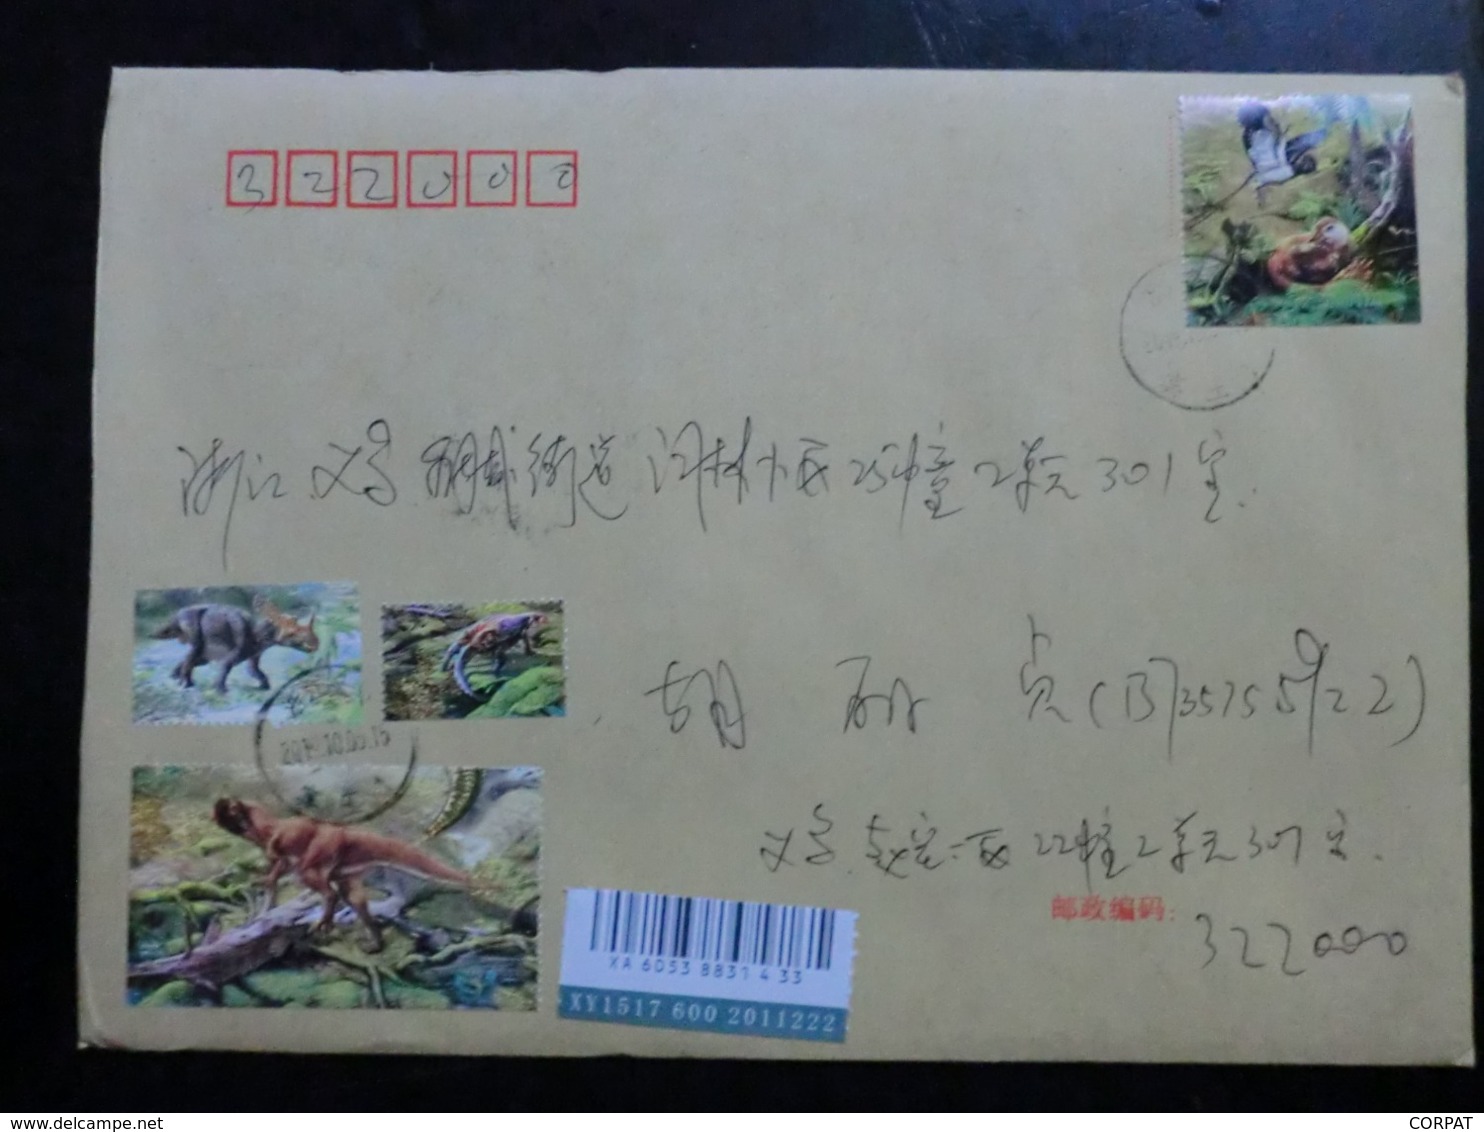 322000
浙江义乌稠城街道 林小区25幢2单元301室.
胡 丽 贞(13735755922)
义乌 区22幢2单元307室.
邮政编码:
322000
XA 6053 8831 4 33
XY1517 600 2011222
CORPAT